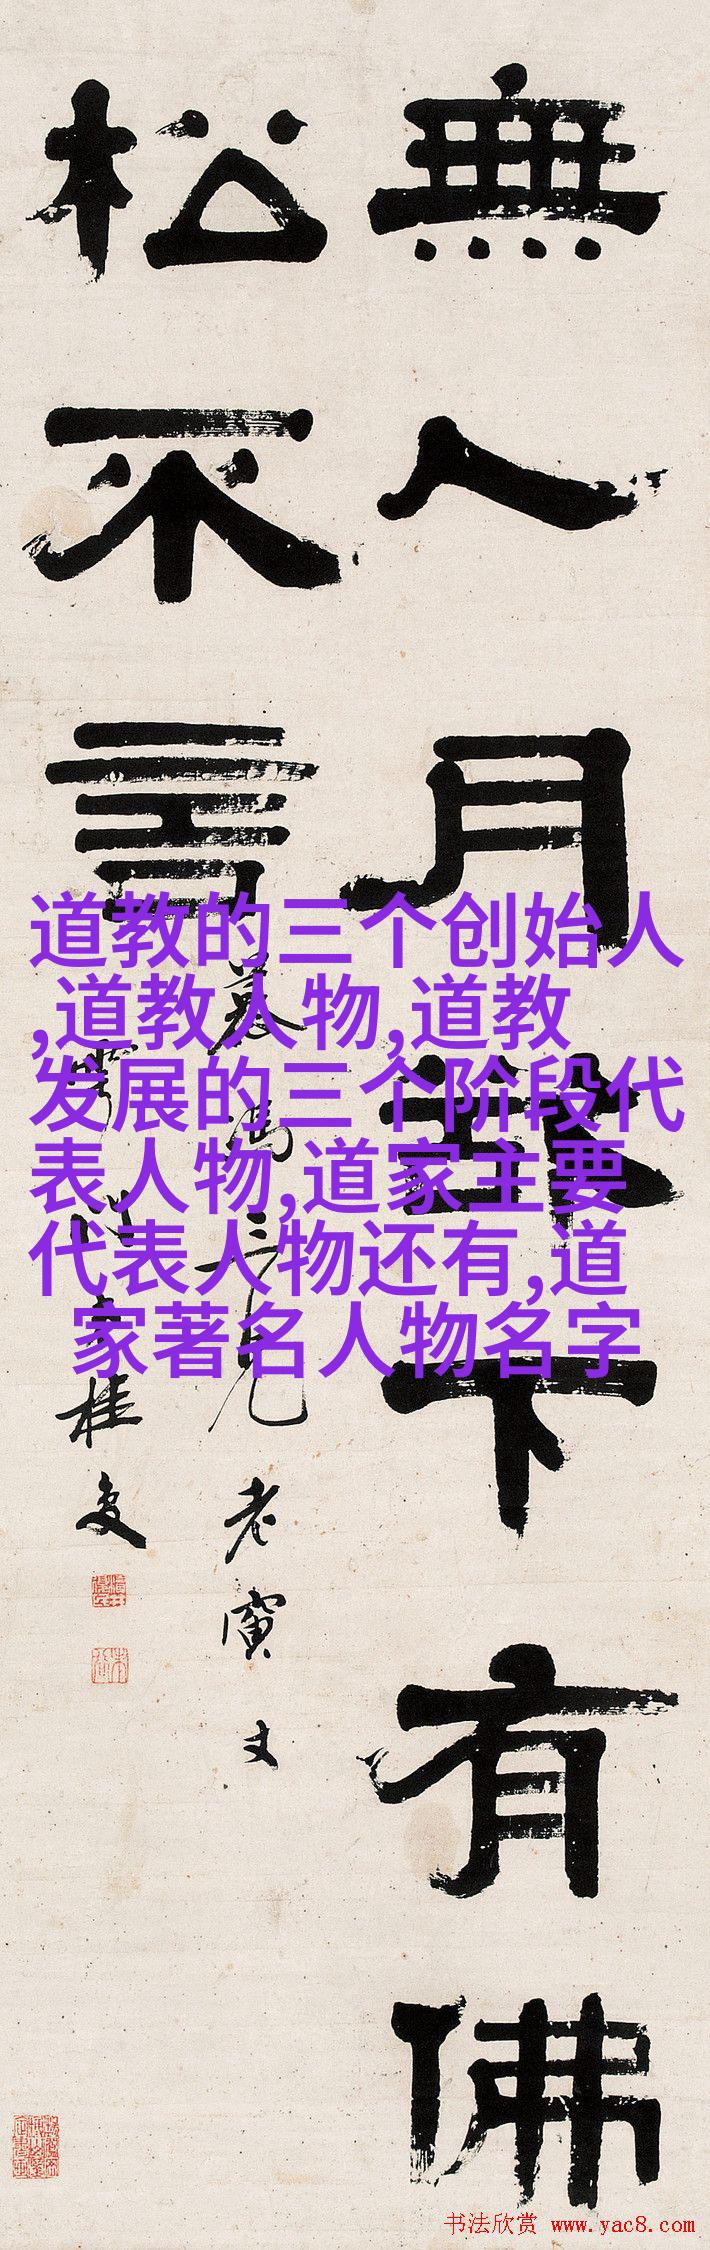 無人月下有佛
松不言
三兄老
桂
道教的三个创始人
,道教人物,道教
发展的三个阶段代
表人物,道家主要
代表人物还有,道
家著名人物名字
书法欣赏 www.yac8.com